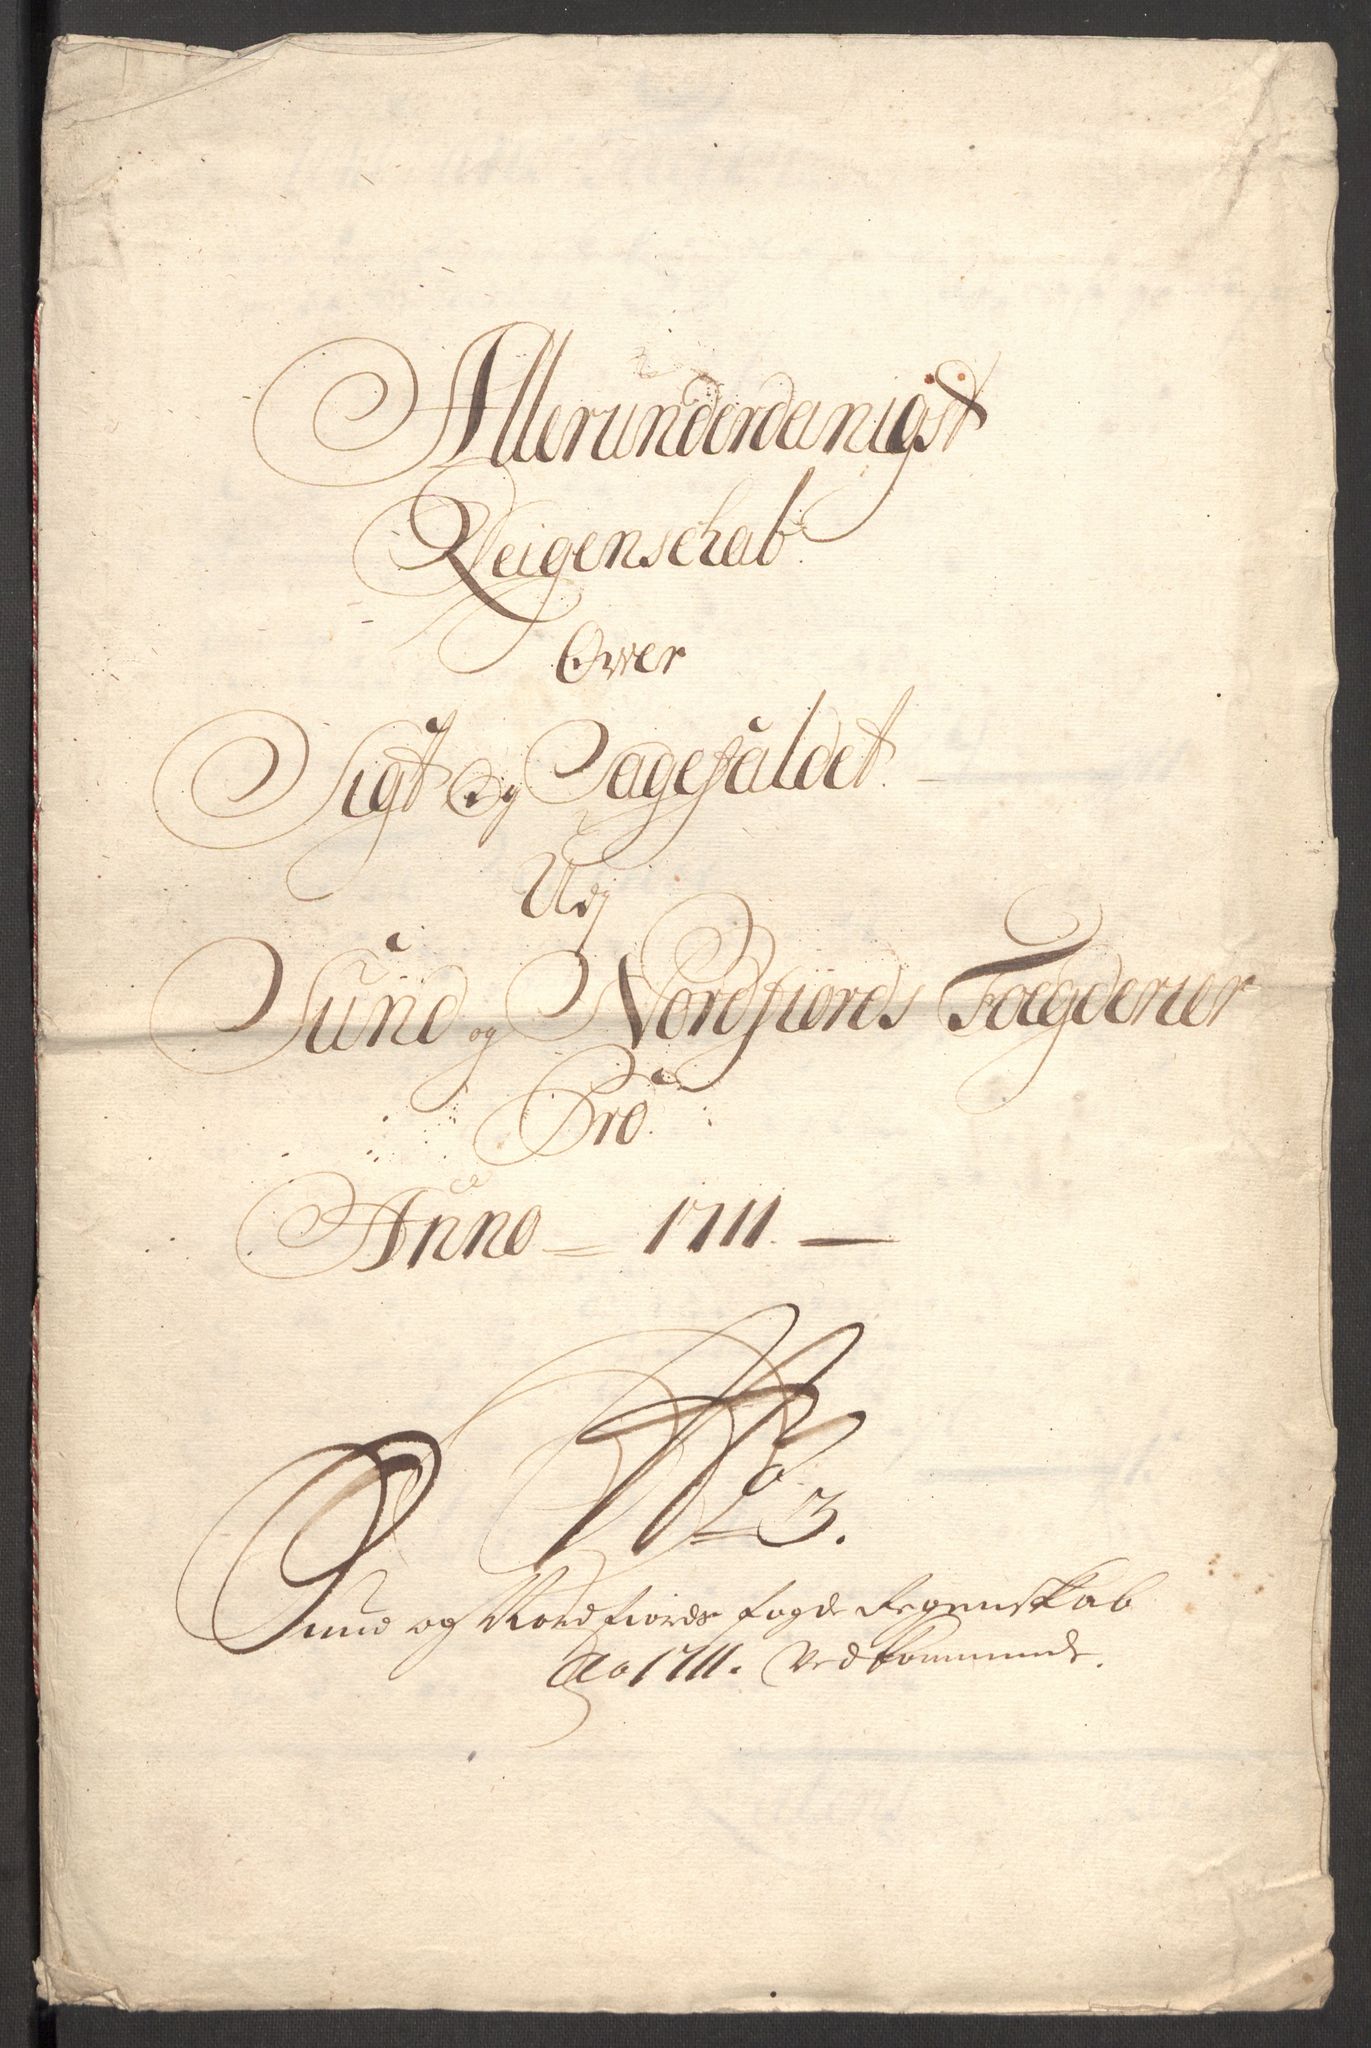 Allerunderdanigst
Reigenschab
Over
Sigt og Sagefaldet
Udj
Sund og Nordfiords Foegderier
Pro
Anno 1711
No 3.
Sund og Nordfiords fogde Regenskab
Ao 1711. Vedkommende.